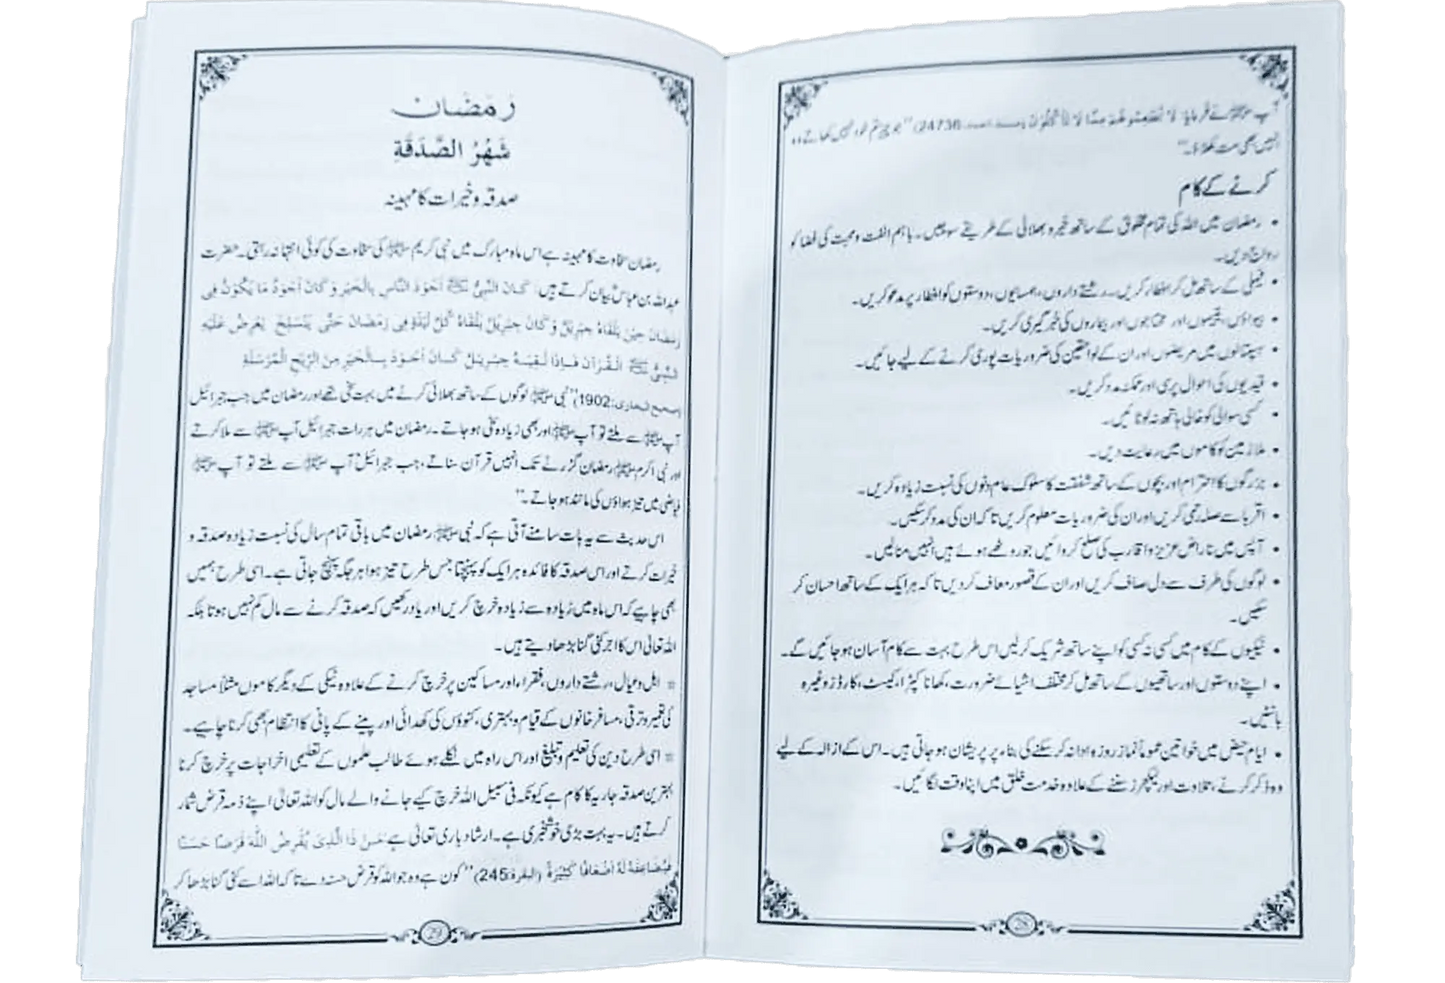 آپ ﷺ نے فرمایا: لَا تُطْعِمُوهُمْ مِمَّا لَا تَأْكُلُونَ (مسند احمد: 24736) ”جو چیز تم خود نہیں کھاتے وہ
انہیں بھی مت کھلاؤ۔“
کرنے کے کام
• رمضان میں اللہ کی تمام مخلوق کے ساتھ خیر و بھلائی کے طریقے سوچیں۔ باہم الفت و محبت کی فضا کو
رواج دیں۔
• فیملی کے ساتھ مل کر افطار کریں۔ رشتے داروں، ہمسایوں، دوستوں کو افطار پر مدعو کریں۔
• بیواؤں، یتیموں اور محتاجوں اور بیماروں کی خبر گیری کریں۔
• ہسپتالوں میں مریضوں اور ان کے لواحقین کی ضروریات پوری کرنے کے لیے جائیں۔
• قیدیوں کی احوال پرسی اور ممکنہ مدد کریں۔
• کسی سوالی کو خالی ہاتھ نہ لوٹائیں۔
• ملازمین کو کاموں میں رعایت دیں۔
• بزرگوں کا احترام اور بچوں کے ساتھ شفقت کا سلوک عام دنوں کی نسبت زیادہ کریں۔
• اقربا سے صلہ رحمی کریں اور ان کی ضروریات معلوم کریں تاکہ ان کی مدد کر سکیں۔
• آپس میں ناراض عزیز و اقارب کی صلح کروائیں جو روٹھے ہوئے ہیں انہیں منا لیں۔
• لوگوں کی طرف سے دل صاف کریں اور ان کے قصور معاف کر دیں تاکہ ہر ایک کے ساتھ احسان کر
سکیں۔
• نیکیوں کے کام میں کسی نہ کسی کو اپنے ساتھ شریک کر لیں اس طرح بہت سے کام آسان ہو جائیں گے۔
• اپنے دوستوں اور ساتھیوں کے ساتھ مل کر مختلف اشیائے ضرورت، کھانا، کپڑا، کیسٹ، کارڈز وغیرہ
بانٹیں۔
• ایام حیض میں خواتین عموماً نماز روزہ ادا نہ کر سکنے کی بناء پر پریشان ہو جاتی ہیں۔ اس کے ازالہ کے لیے
وہ ذکر کرنے، تلاوت اور لیکچرز سننے کے علاوہ خدمت خلق میں اپنا وقت لگائیں۔
28
رَمَضَان
شَهْرُ الصَّدَقَةِ
صدقہ و خیرات کا مہینہ
رمضان سخاوت کا مہینہ ہے اس ماہ مبارک میں نبی کریم ﷺ کی سخاوت کی کوئی انتہا نہ رہتی۔ حضرت
عبداللہ بن عباسؓ بیان کرتے ہیں: كَانَ النَّبِيُّ ﷺ أَجْوَدَ النَّاسِ بِالْخَيْرِ وَكَانَ أَجْوَدُ مَا يَكُوْنُ فِى
رَمَضَانَ حِيْنَ يَلْقَاهُ جِبْرِيْلُ وَكَانَ جِبْرِيْلُ يَلْقَاهُ كُلَّ لَيْلَةٍ فِى رَمَضَانَ حَتّٰى يَنْسَلِخَ يَعْرِضُ عَلَيْهِ
النَّبِيُّ ﷺ الْقُرْآنَ فَإِذَا لَقِيَهُ جِبْرِيْلُ كَانَ أَجْوَدَ بِالْخَيْرِ مِنَ الرِّيْحِ الْمُرْسَلَةِ
(صحیح البخاری: 1902) ”نبی ﷺ لوگوں کے ساتھ بھلائی کرنے میں بہت سخی تھے اور رمضان میں جب جبرائیل
آپ ﷺ سے ملتے تو آپ ﷺ اور بھی زیادہ سخی ہو جاتے۔ رمضان میں ہر رات جبرائیل آپ ﷺ سے ملا کرتے
اور نبی اکرم ﷺ رمضان گزرنے تک انہیں قرآن سناتے، جب جبرائیل آپ ﷺ سے ملتے تو آپ ﷺ
فیاضی میں تیز ہواؤں کی مانند ہو جاتے۔“
اس حدیث سے یہ بات سامنے آتی ہے کہ نبی ﷺ رمضان میں باقی تمام سال کی نسبت زیادہ صدقہ و
خیرات کرتے اور اس صدقہ کا فائدہ ہر ایک کو پہنچتا جس طرح تیز ہوا ہر جگہ پہنچ جاتی ہے۔ اسی طرح ہمیں
بھی چاہیے کہ اس ماہ میں زیادہ سے زیادہ خرچ کریں اور یاد رکھیں کہ صدقہ کرنے سے مال کم نہیں ہوتا بلکہ
اللہ تعالیٰ اس کا اجر کئی گنا بڑھا دیتے ہیں۔
☆ اہل و عیال، رشتے داروں، فقراء اور مساکین پر خرچ کرنے کے علاوہ نیکی کے دیگر کاموں مثلاً مساجد
کی تعمیر و ترقی، مسافر خانوں کے قیام و بہتری، کنوؤں کی کھدائی اور پینے کے پانی کا انتظام بھی کرنا چاہیے۔
☆ اسی طرح دین کی تعلیم و تبلیغ اور اس راہ میں نکلے ہوئے طالب علموں کے تعلیمی اخراجات پر خرچ کرنا
بہترین صدقہ جاریہ کا کام ہے کیونکہ فی سبیل اللہ خرچ کیے جانے والے مال کو اللہ تعالیٰ اپنے ذمہ قرض شمار
کرتے ہیں۔ یہ بہت بڑی خوشخبری ہے۔ ارشاد باری تعالیٰ ہے: مَنْ ذَا الَّذِىْ يُقْرِضُ اللهَ قَرْضًا حَسَنًا
فَيُضَاعِفَهُ لَهُ أَضْعَافًا كَثِيْرَةً (البقرة: 245) ”کون ہے وہ جو اللہ کو قرض حسنہ دے تاکہ اللہ اسے کئی گنا بڑھا کر
29